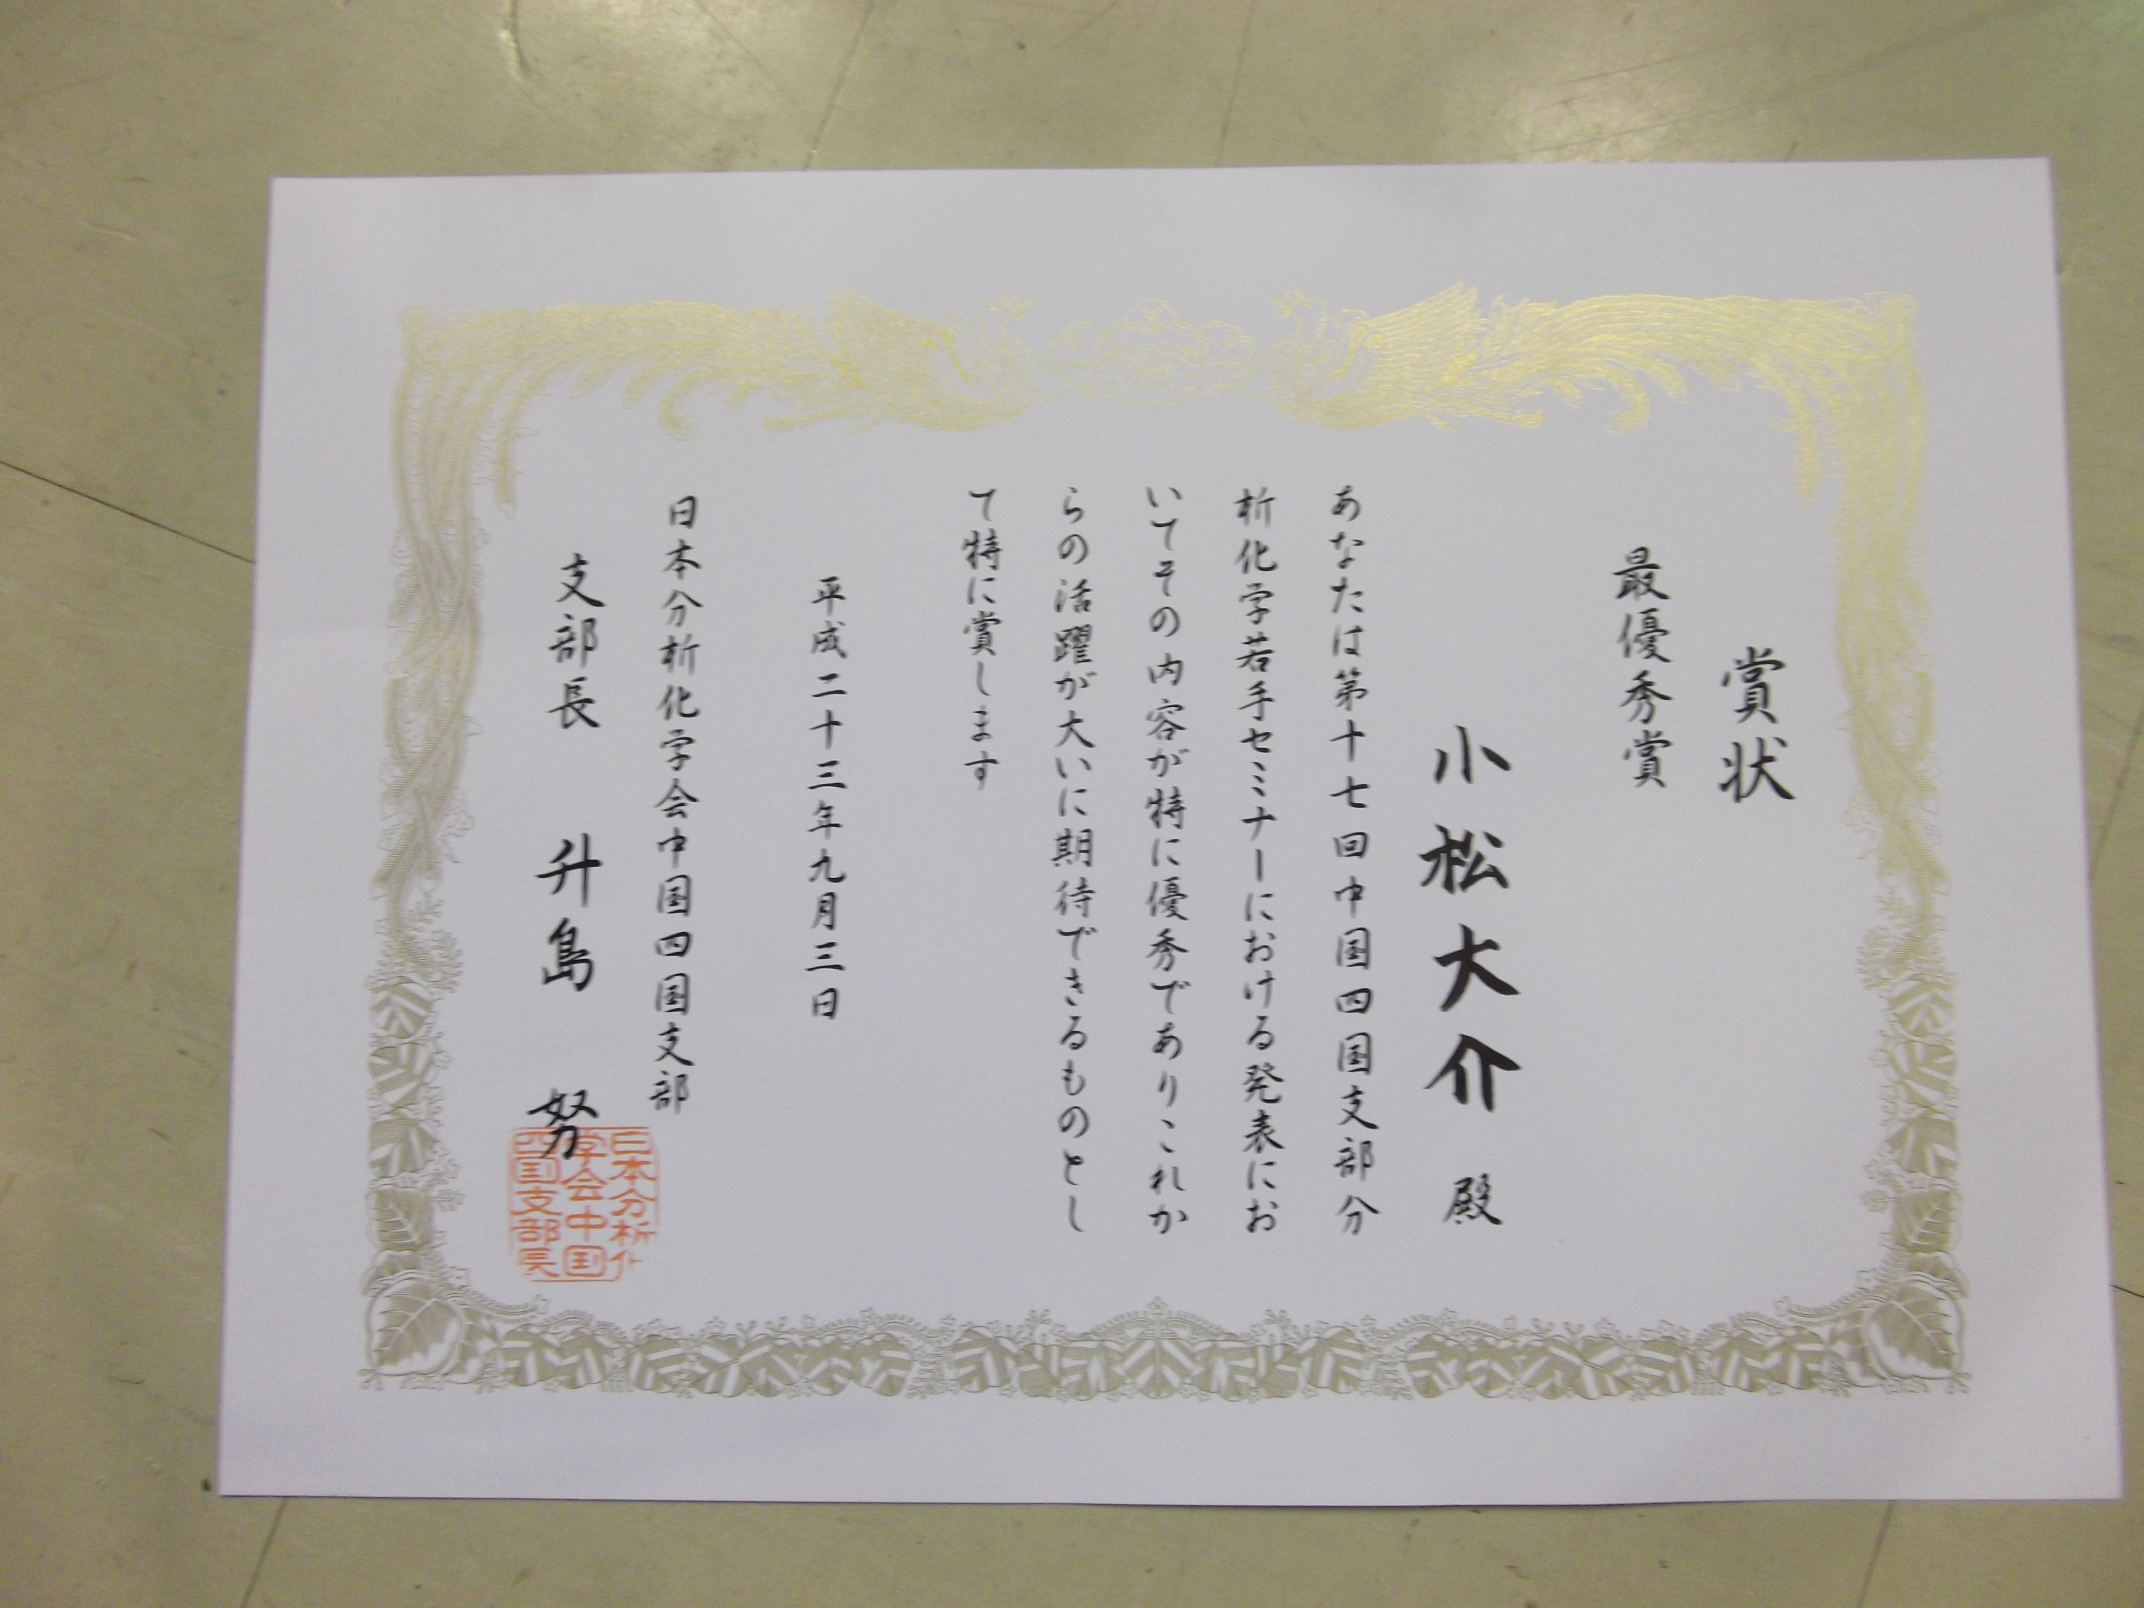 賞状
最優秀賞
小松大介 殿
あなたは第十七回中国四国支部分
析化学若手セミナーにおける発表にお
いてその内容が特に優秀でありこれか
らの活躍が大いに期待できるものとし
て特に賞します
平成二十三年九月三日
日本分析化学会中国四国支部
支部長 升島 努
日本分析化
学会中国
四国支部長